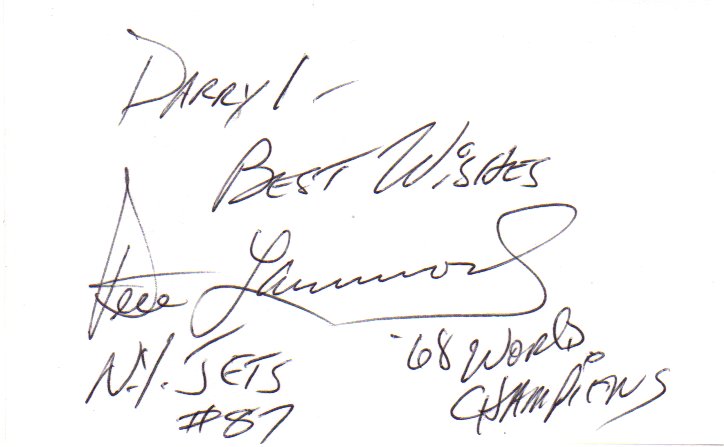 Darryl -
Best Wishes
Pete Lammons
N.Y. Jets
#87
'68 World
Champions